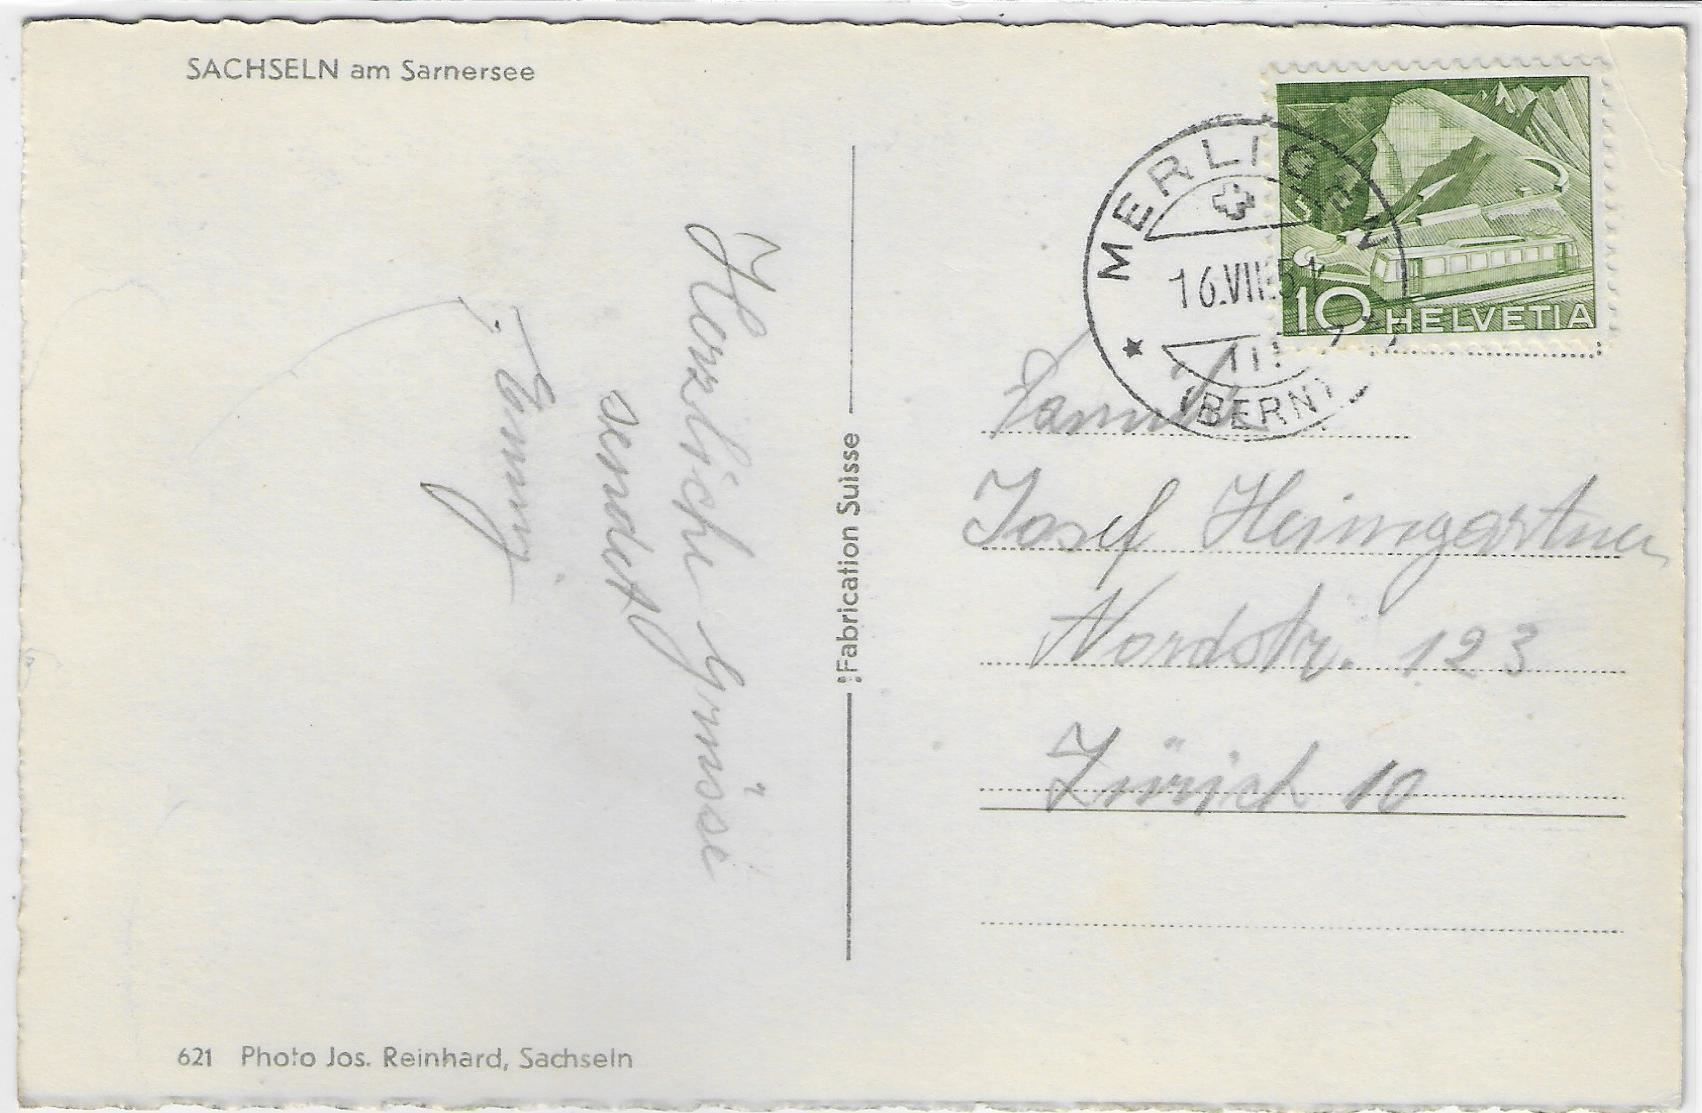 SACHSELN am Sarnersee
Herzliche Grüsse
sendet
Emmy
621 Photo Jos. Reinhard, Sachseln
Fabrication Suisse
MERLIGEN
16.VII
(BERN)
10 HELVETIA
Familie
Josef Heimgartner
Nordstr. 123
Zürich 10